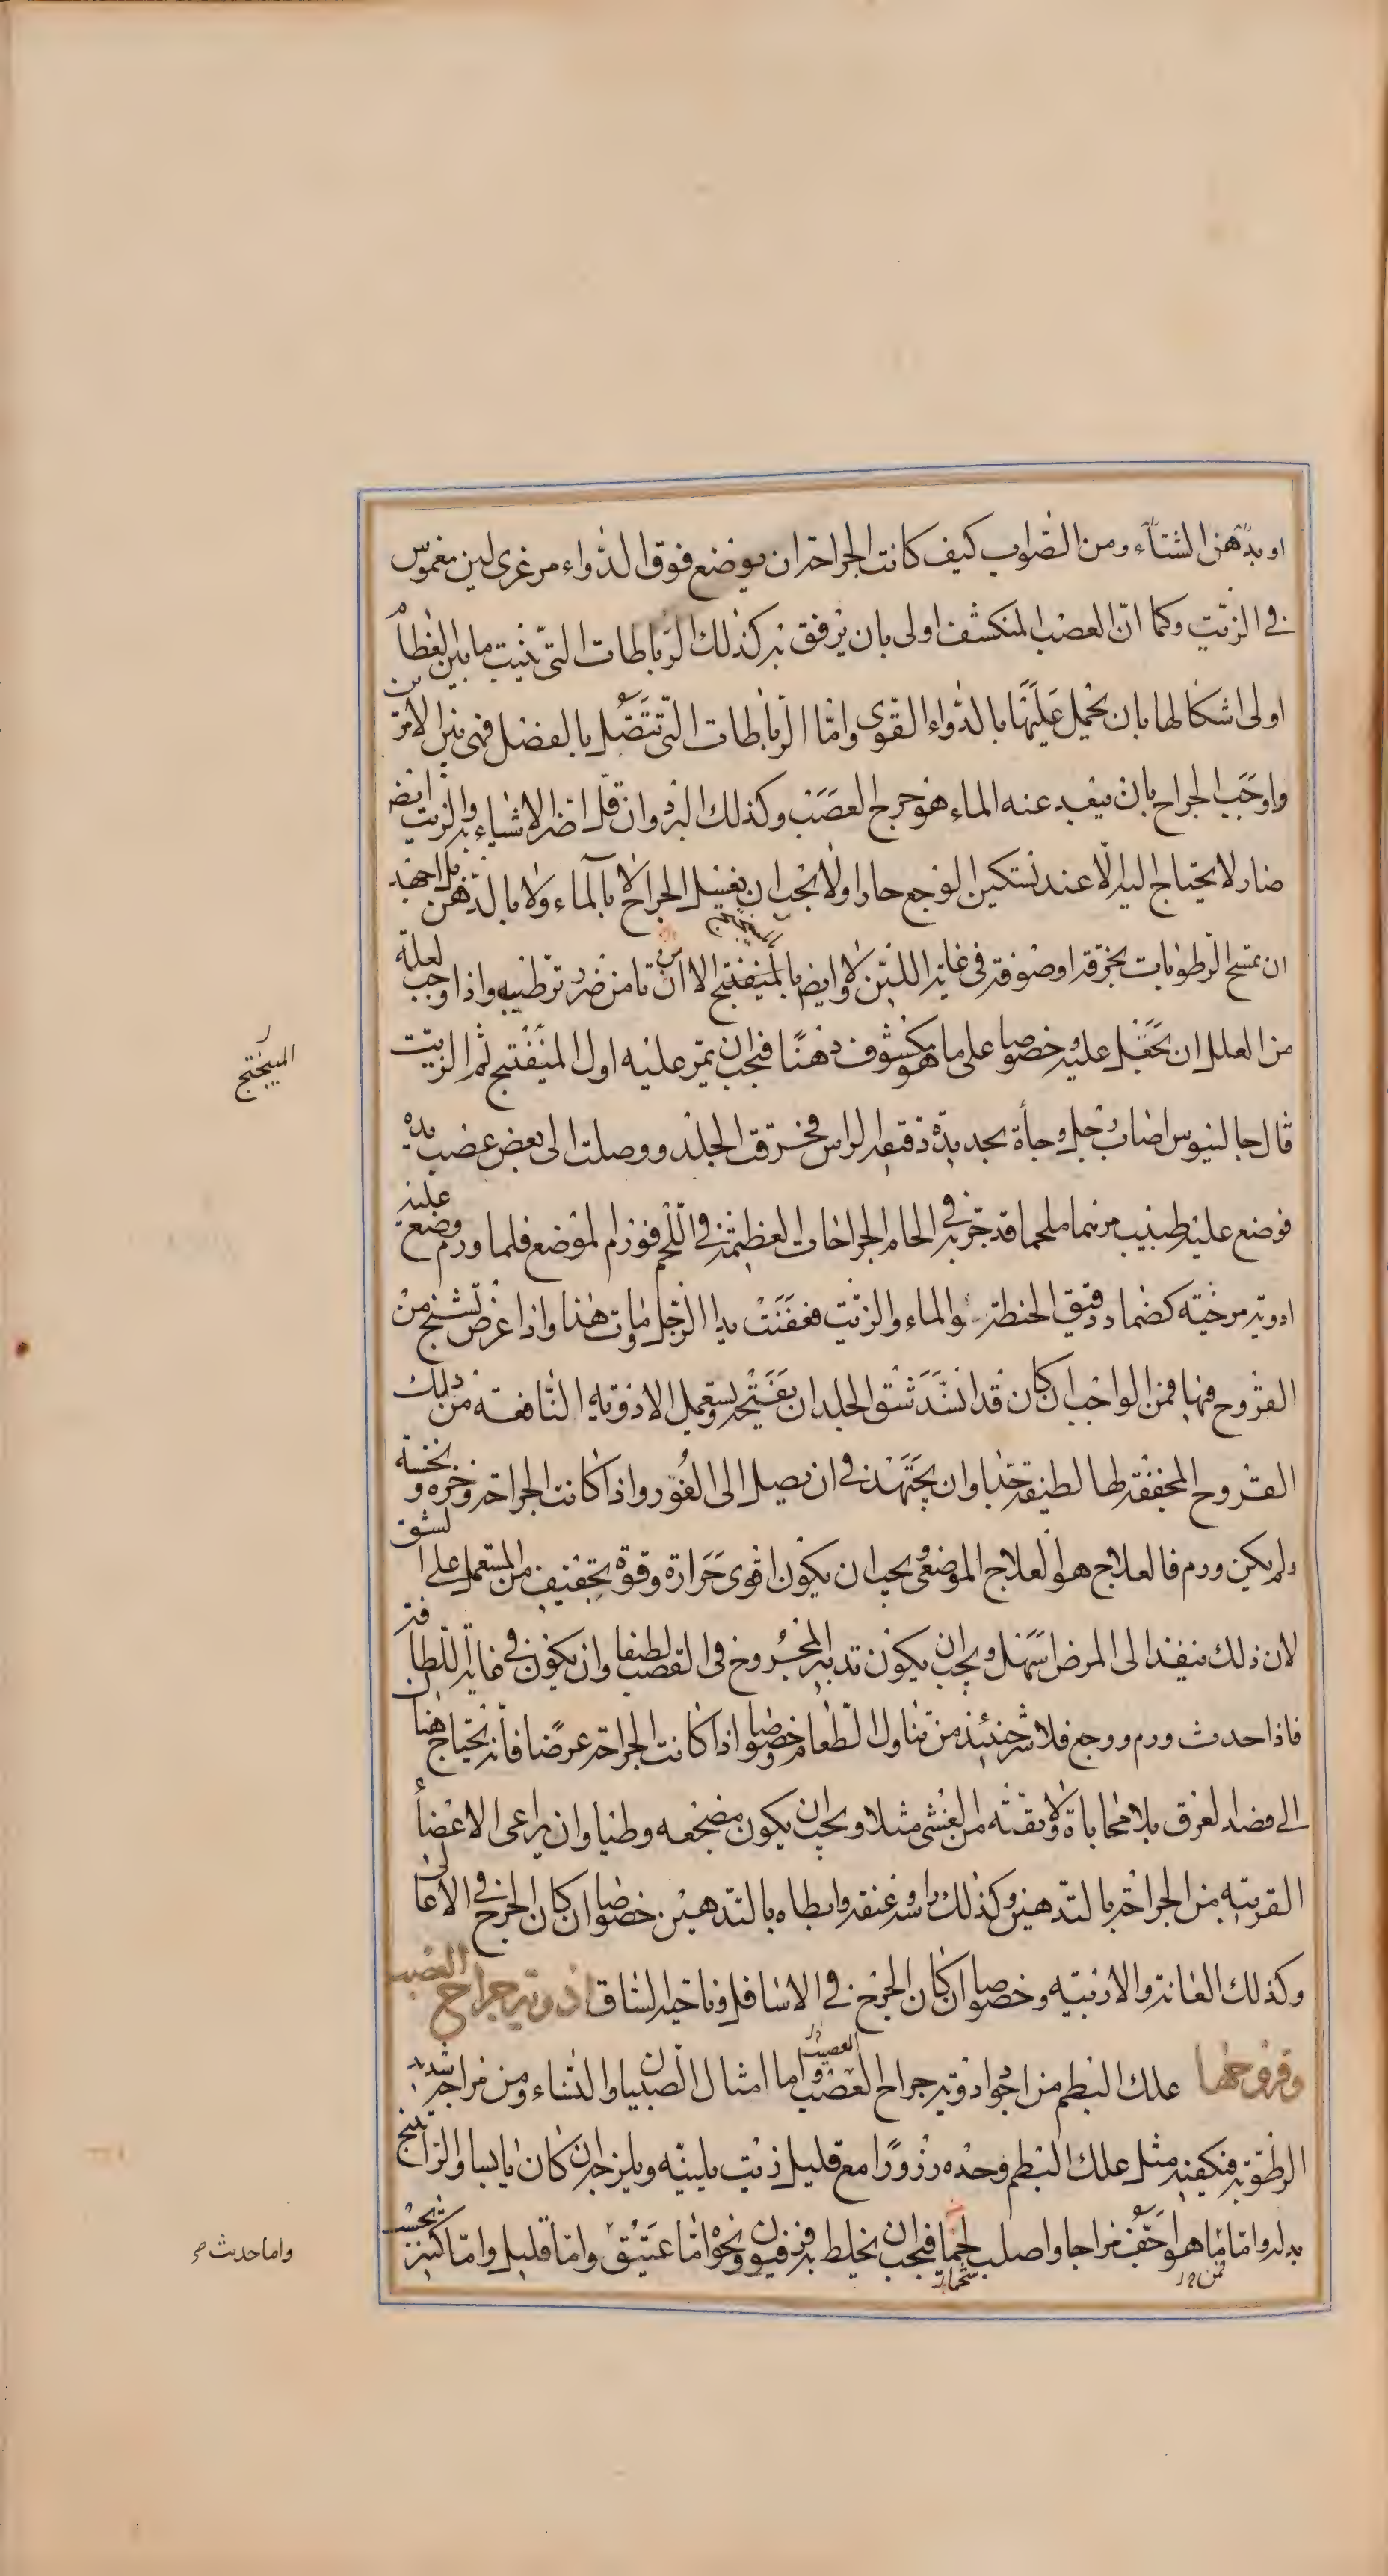 او بدهن الشتاء ومن الصواب كيف كانت الجراحة ان يوضع فوق الدواء مرعزى لين مغموس
في الزيت وكما ان العصب المنكشف اولى بان يرفق به كذلك الرباطات التي نبتت ما بين العظام
اولى اشكالها بان يحمل عليها بالدواء القوى واما الرباطات التي تتصل بالعضل فهي بين الامرين
واوجب الجراح بان يبعد عنه الماء هو جرح العصب وكذلك البرد وان قل اضر الاشياء به والزيت ايضا
ضار لا يحتاج اليه الا عند تسكين الوجع حارا ولا يجب ان يغسل الجراح لا بالماء ولا بالدهن بل اجهد
ان تمسح الرطوبات بخرقة او صوفة في غاية اللين ولا ايضا بالميفختج الا ان تامن ضرر ترطيبه واذا وجب لعلة
من العلل ان تجعل عليه وخصوصا على ما هو مكشوف دهنا فيجب ان يمر عليه اول الميفختج ثم الزيت
الميبختج
قال جالينوس اصاب رجل وجأة بحديدة دقيقة الراس فخرقت الجلد ووصلت الى بعض عصب يده
فوضع عليه طبيب مرهما ملحما قد جربه في الحام الجراحات العظيمة في اللحم فورم الموضع فلما ورم وضع عليه
ادوية مرخية كضماد دقيق الحنطة والماء والزيت فعفنت يد الرجل ومات هذا واذا عرض تشنج من
القروح فيها فمن الواجب ان كان قد انسد شق الجلد ان يفتحه ويستعمل الادوية النافعة من ذلك
القروح المجففة لها لطيفة جدا وان يجتهد في ان يصل الى الغور واذا كانت الجراحة وخزة ونخسة
ولم يكن ورم فالعلاج هو العلاج الموضعي ويجب ان يكون اقوى حرارة وقوة تجفيف من المستعمل على الشق
لان ذلك ينفذ الى المرض اسهل ويجب ان يكون تدبير المجروح في العصب لطيفا وان يكون في غاية اللطافة
فاذا حدث ورم ووجع فلا شر حينئذ من تناول الطعام وخصوصا اذا كانت الجراحة عرضا فانه يحتاج هنا
الى فصد العرق بلا محاباة ولا تقية من الغشى مثلا ويجب ان يكون مضجعه وطيا وان يراعى الاعضا
القريبة من الجراحة بالتدهين وكذلك راسه وعنقه وابطاه بالتدهين خصوصا ان كان الجرح في الاعالى
وكذلك العانة والاربية وخصوصا ان كان الجرح في الاسافل وناحية الساق ادوية جراح العصب
وقروحها علك البطم من اجود ادوية جراح العصب واما امثال الصبيان والنساء ومن مزاجه شديد
العصب
الرطوبة فيكفيه مثل علك البطم وحده ذرورا مع قليل زيت يلينه ويلزجه ان كان يابسا والراتينج
بدله واما ما هو اجف مزاجا واصلب لحما فيجب ان يخلط به فرفيون ونحوه اما عتيق واما قليل واما كثير بحسب
واما حديث صح